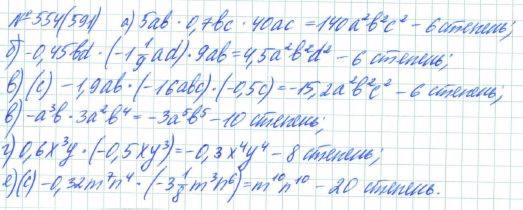 № 554(591) а) 5ab · 0,7bc · 40ac = 140a²b²c² - 6 степень;
б) -0,45bd · (-1 1/9 ad) · 9ab = 4,5a²b²d² - 6 степень;
в) (с) -1,9ab · (-16abc) · (-0,5c) = -15,2a²b²c² - 6 степень;
в) -a³b · 3a²b⁴ = -3a⁵b⁵ - 10 степень;
г) 0,6x³y · (-0,5xy³) = -0,3x⁴y⁴ - 8 степень;
е) (с) -0,32m⁷n⁴ · (-3 1/8 m³n⁶) = m¹⁰n¹⁰ - 20 степень.